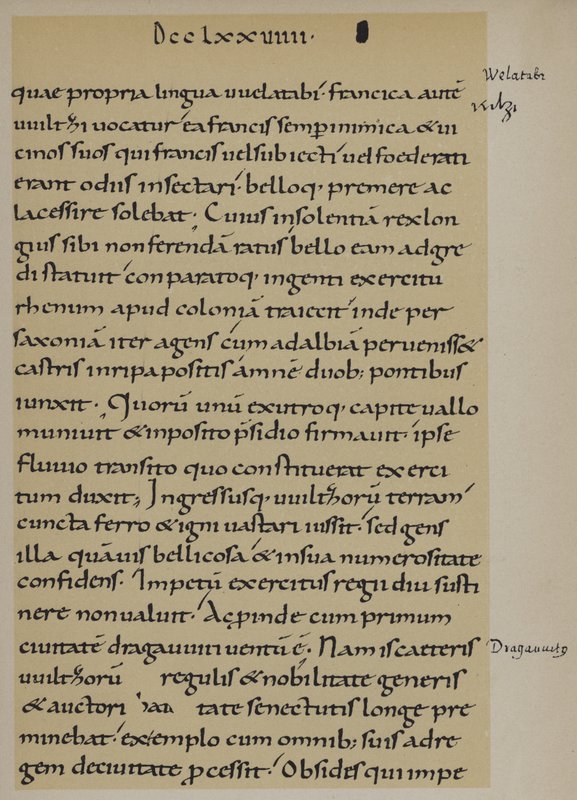 DccLxxuiiii·
quae propria lingua uuelatabi· francica autē
Welatabi
uuilthi uocatur· ea francis semp inimica & ui
wilzi
cinos suos qui francis uel subiecti uel foederati
erant odiis insectari· belloq; premere ac
lacessire solebat· Cuius insolentiā rex lon
gius sibi non ferendā ratus bello eam adgre
di statuit con paratoq; ingenti exercitu
rhenum apud coloniā traiecit inde per
saxoniā iter agens cum ad albiā perueniss&
castris in ripa positis amnē duob; pontibus
iunxit· Quorū unū ex utroq; capite uallo
muniuit & inposito p̄sidio firmauit· ipse
fluuio transito quo constituerat exerci
tum duxit; Ingressusq; uuilthorū terram
cuncta ferro & igni uastari iussit· sed gens
illa quāuis bellicosa & in sua numerositate
confidens· Impetū exercitus regii diu susti
nere non ualuit· Ac pinde cum primum
ciuitatē dragauuiti uentū ē· Nam is caeteris
Dragauuit9
uuilthorū regulis & nobilitate generis
& auctori tate senectutis longe pre
minebat· extemplo cum omnib; suis ad re
gem de ciuitate pcessit· Obsides qui impe